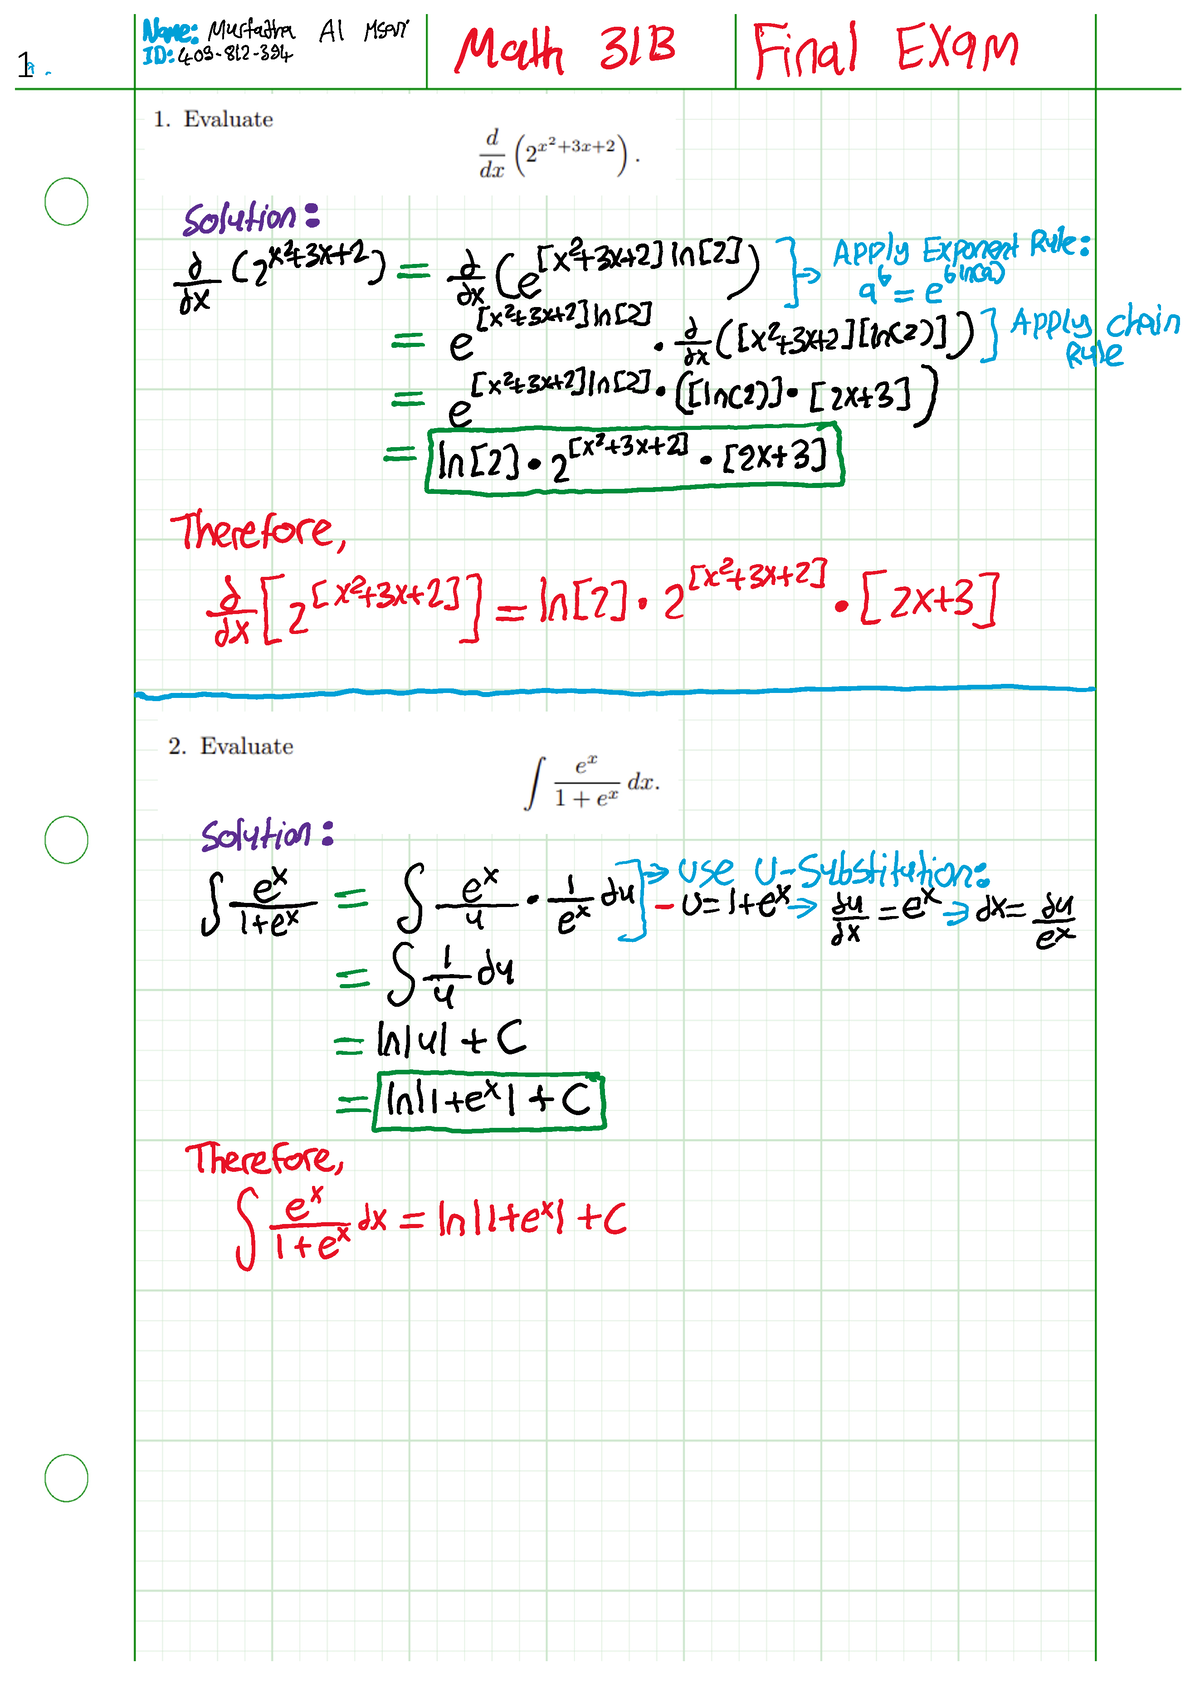 Name: Murtadha Al Msari
ID: 409-812-394
Math 31B
Final Exam
1.
1. Evaluate
d/dx (2^{x^2+3x+2}).
Solution:
∂/∂x (2^{x^2+3x+2}) = ∂/∂x (e^{[x^2+3x+2] ln[2]}) ] → Apply Exponent Rule: a^b = e^{b ln(a)}
= e^{[x^2+3x+2] ln[2]} · ∂/∂x ([x^2+3x+2][ln(2)]) ] Apply chain Rule
= e^{[x^2+3x+2] ln[2]} · ([ln(2)] · [2x+3])
= ln[2] · 2^{[x^2+3x+2]} · [2x+3]
Therefore,
∂/∂x [2^{[x^2+3x+2]}] = ln[2] · 2^{[x^2+3x+2]} · [2x+3]
2. Evaluate
∫ e^x/(1+e^x) dx.
Solution:
∫ e^x/(1+e^x) = ∫ e^x/u · 1/e^x du ] → Use U-Substitution:
- U = 1+e^x → ∂u/∂x = e^x → dx = ∂u/e^x
= ∫ 1/u du
= ln|u| + C
= ln|1+e^x| + C
Therefore,
∫ e^x/(1+e^x) dx = ln|1+e^x| + C